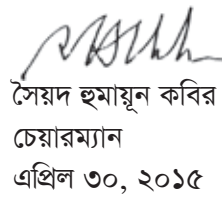 সৈয়দ হুমায়ূন কবির
চেয়ারম্যান
এপ্রিল ৩০, ২০১৫